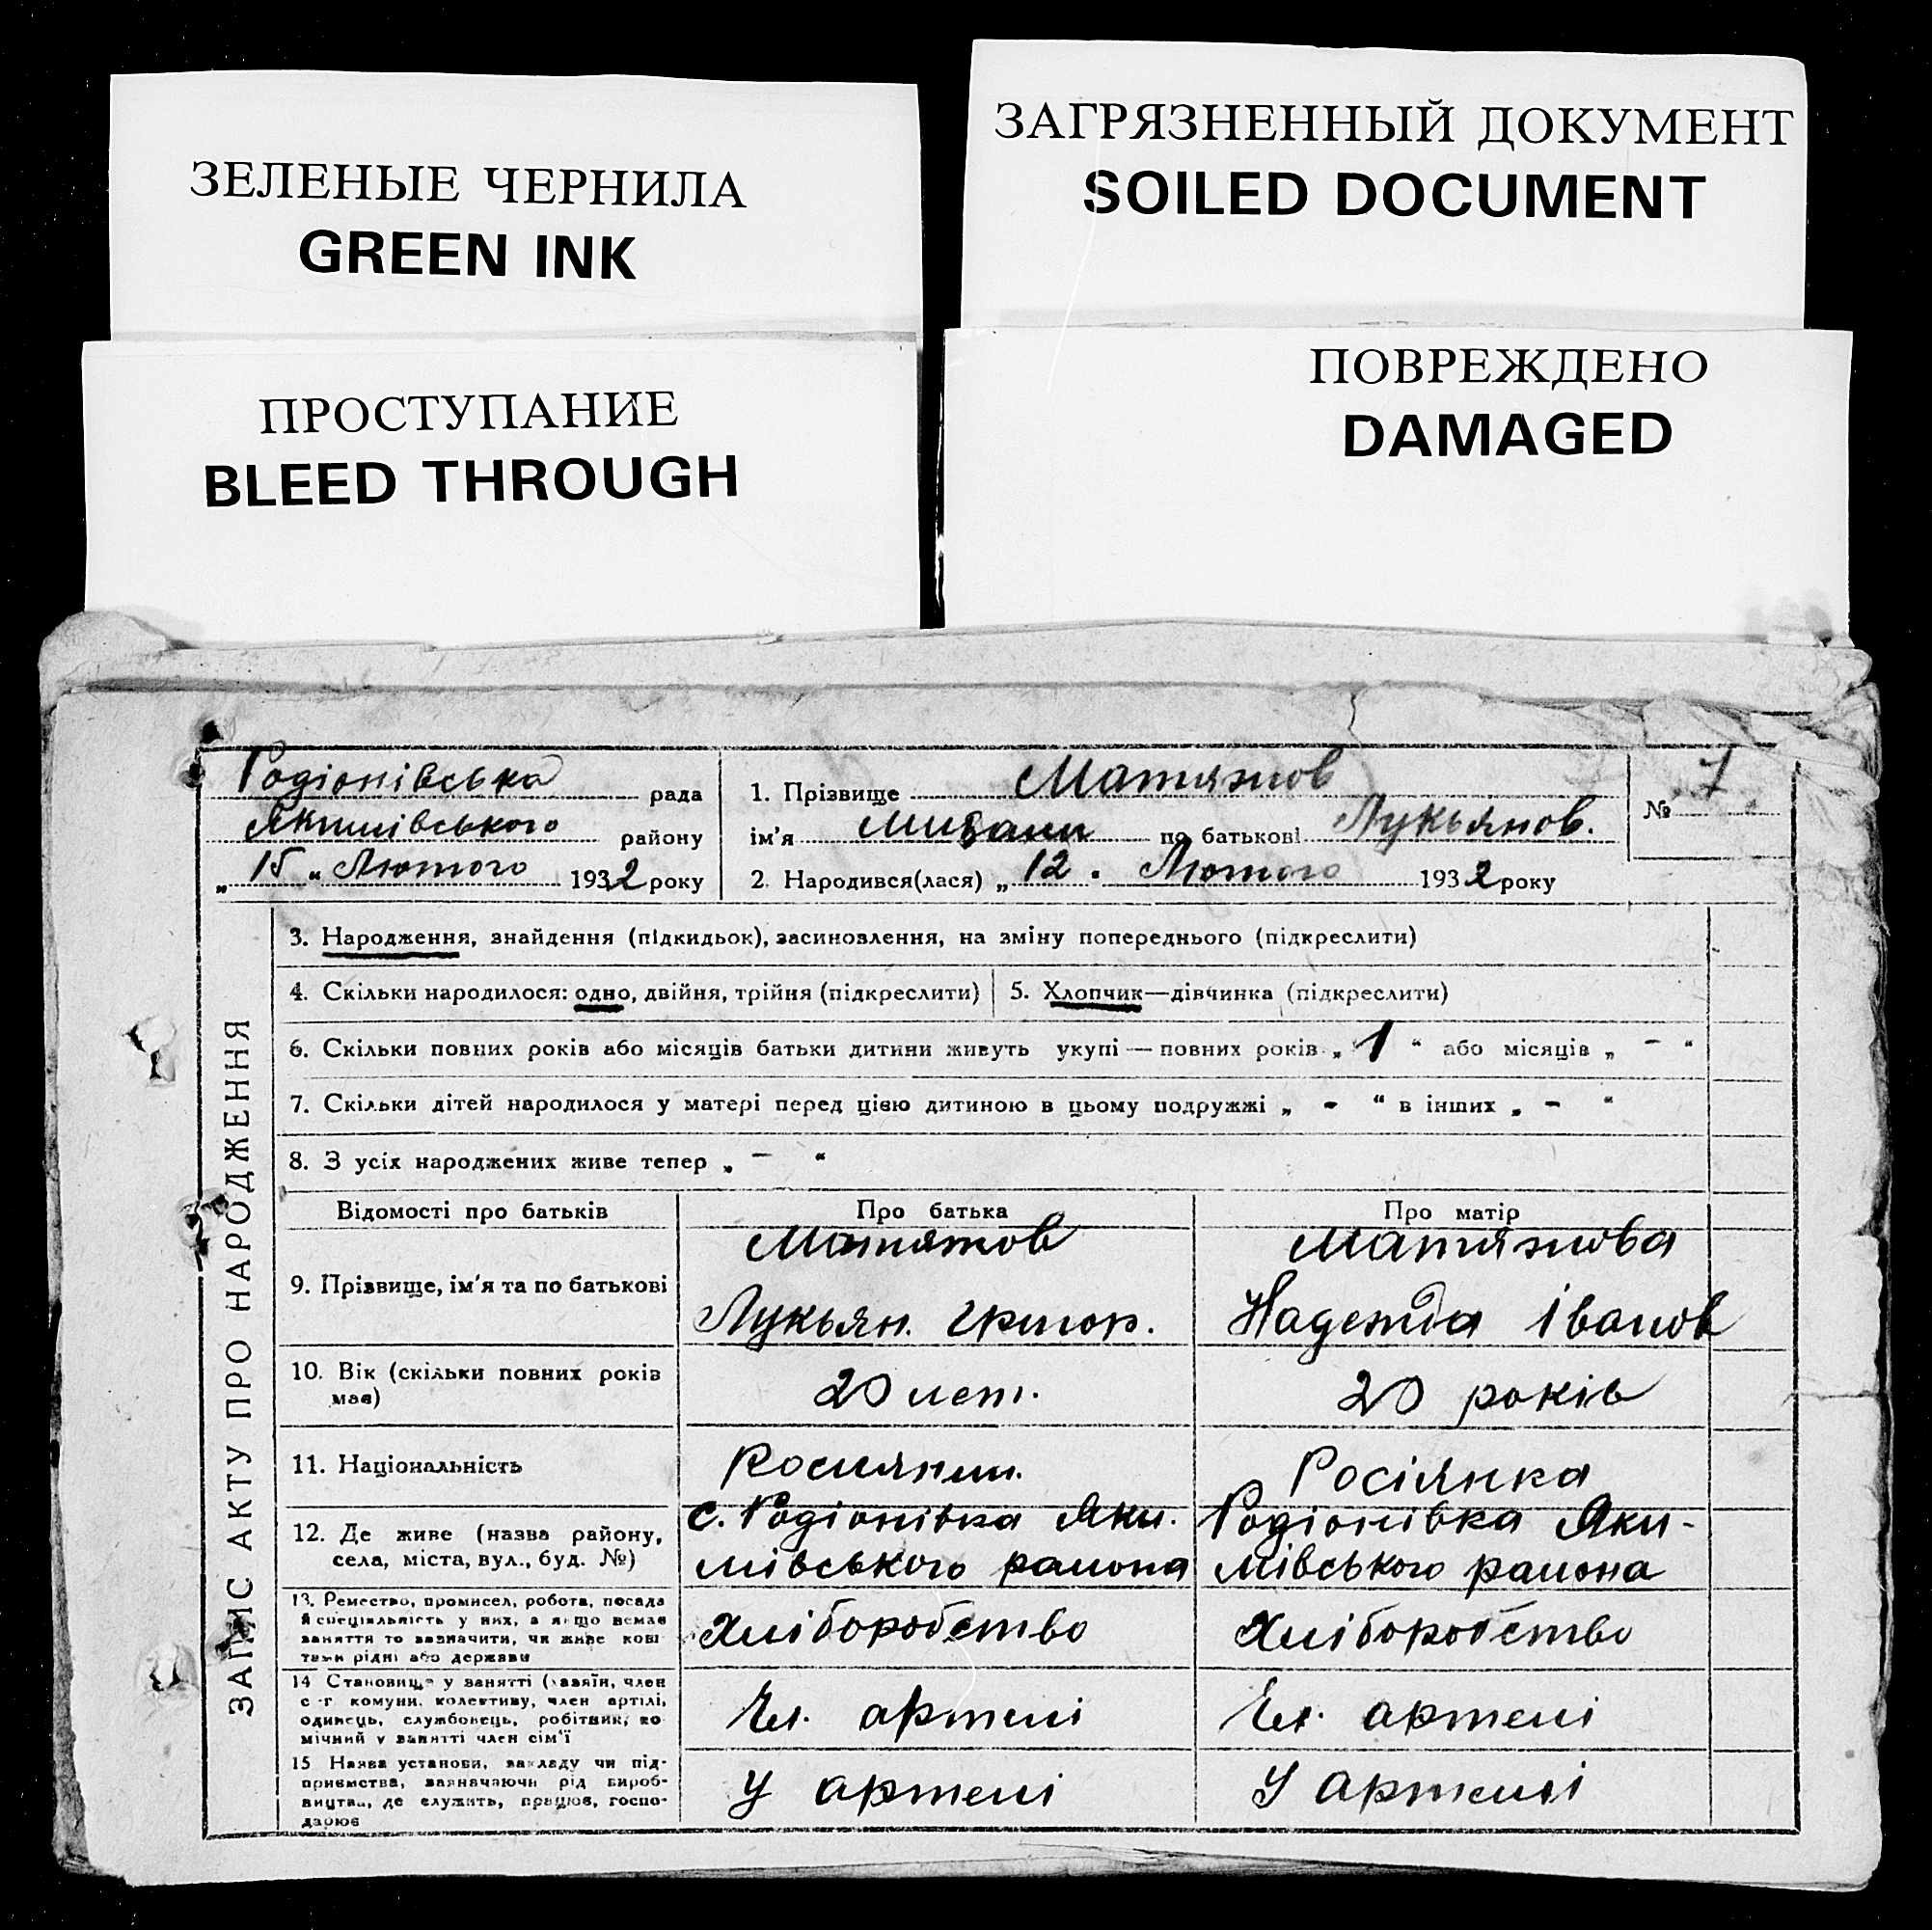 ЗЕЛЕНЫЕ ЧЕРНИЛА
GREEN INK
ЗАГРЯЗНЕННЫЙ ДОКУМЕНТ
SOILED DOCUMENT
ПРОСТУПАНИЕ
BLEED THROUGH
ПОВРЕЖДЕНО
DAMAGED
Родіонівська рада
Якимівського району
„ 15 “ Лютого 1932 року
1. Прізвище Матяжов
ім'я по батькові Лукьянов.
2. Народився(лася) „ 12 “ Лютого 1932 року
№ 7
ЗАПИС АКТУ ПРО НАРОДЖЕННЯ
3. Народження, знайдення (підкидьок), засиновлення, на зміну попереднього (підкреслити)
4. Скільки народилося: одно, двійня, трійня (підкреслити)
5. Хлопчик—дівчинка (підкреслити)
6. Скільки повних років або місяців батьки дитини живуть укупі — повних років „ 1 “ або місяців „ - “
7. Скільки дітей народилося у матері перед цією дитиною в цьому подружжі „ - “ в інших „ - “
8. З усіх народжених живе тепер „ - “
Відомості про батьків
Про батька
Про матір
9. Прізвище, ім'я та по батькові
Матяжов
Лукьян. Григор.
Матяжова
Надежда Іванов
10. Вік (скільки повних років
має)
20 лет.
20 років
11. Національність
Росиянин.
Росіянка
12. Де живе (назва району,
села, міста, вул., буд. №)
с. Родіонівка Яки.
мівського района
Родіонівка Яки-
мівського района
13. Ремество, промисел, робота, посада
й спеціяльність у них, а якщо немає
заняття то зазначити, чи живе кош
тами рідні або держави
Хліборобство
Хліборобство
14 Становище у занятті (хазяїн, член
с -г комуни, колективу, член артілі,
одинець, службовець, робітник, по
мічний у занятті член сім'ї
Чл. артелі
Чл. артелі
15 Назва установи, закладу чи під-
приємства, зазначаючи рід вироб-
ництва, де служить, працює, госпо-
дарює
У артелі
У артелі